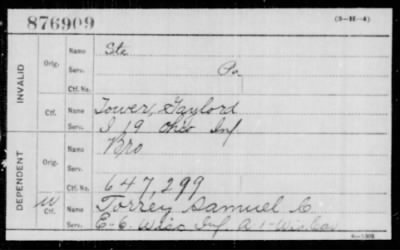 876909
(3-H-4)
INVALID
Orig. Name Ste
Serv. Pa.
Ctf. No.
Ctf. Name Tower, Gaylord
Serv. I 19 Ohio Inf
DEPENDENT
Orig. Name Bro
Serv.
Ctf. No. 647,299
W Ctf. Name Torrey Samuel C.
Serv. E-6. Wisc Inf. A 1-